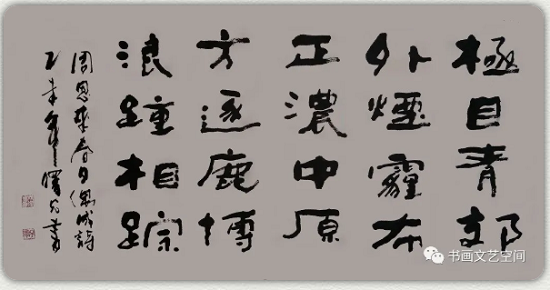 極目青郊
外煙霾布
正濃中原
方逐鹿博
浪踵相踪
周恩來春日偶成詩
書
书画文艺空间